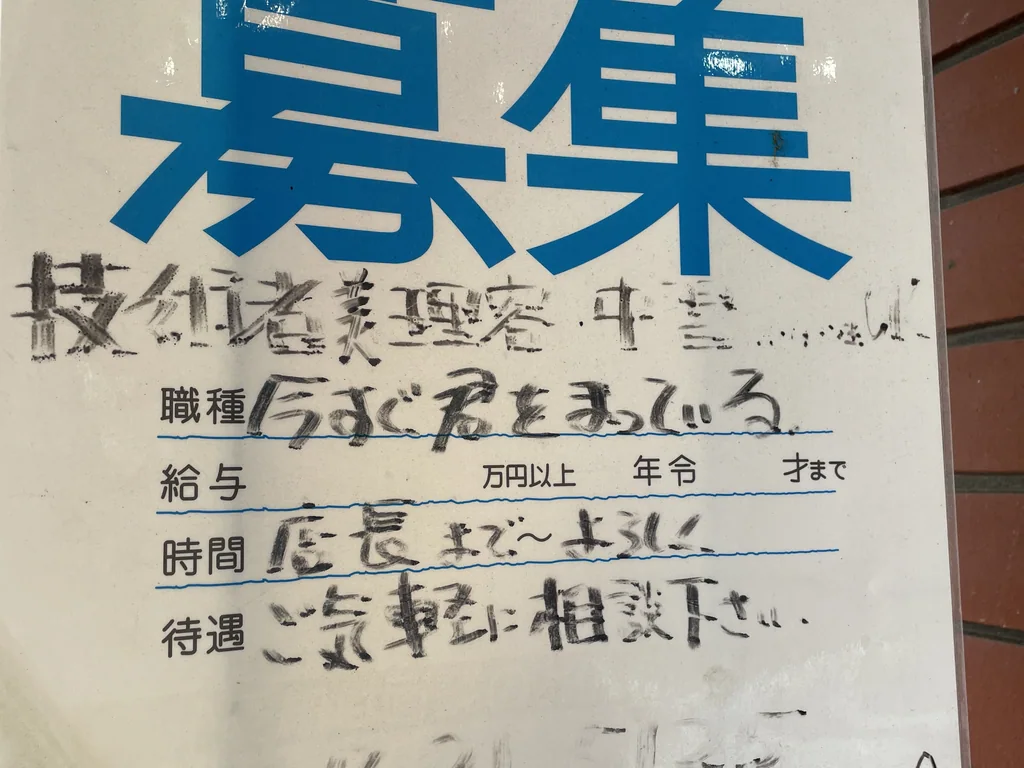 募集
技術者美理容
職種 今すぐ君をまっている.
給与 万円以上 年令 才まで
時間 店長まで～よろしく
待遇 ご気軽に相談下さい.